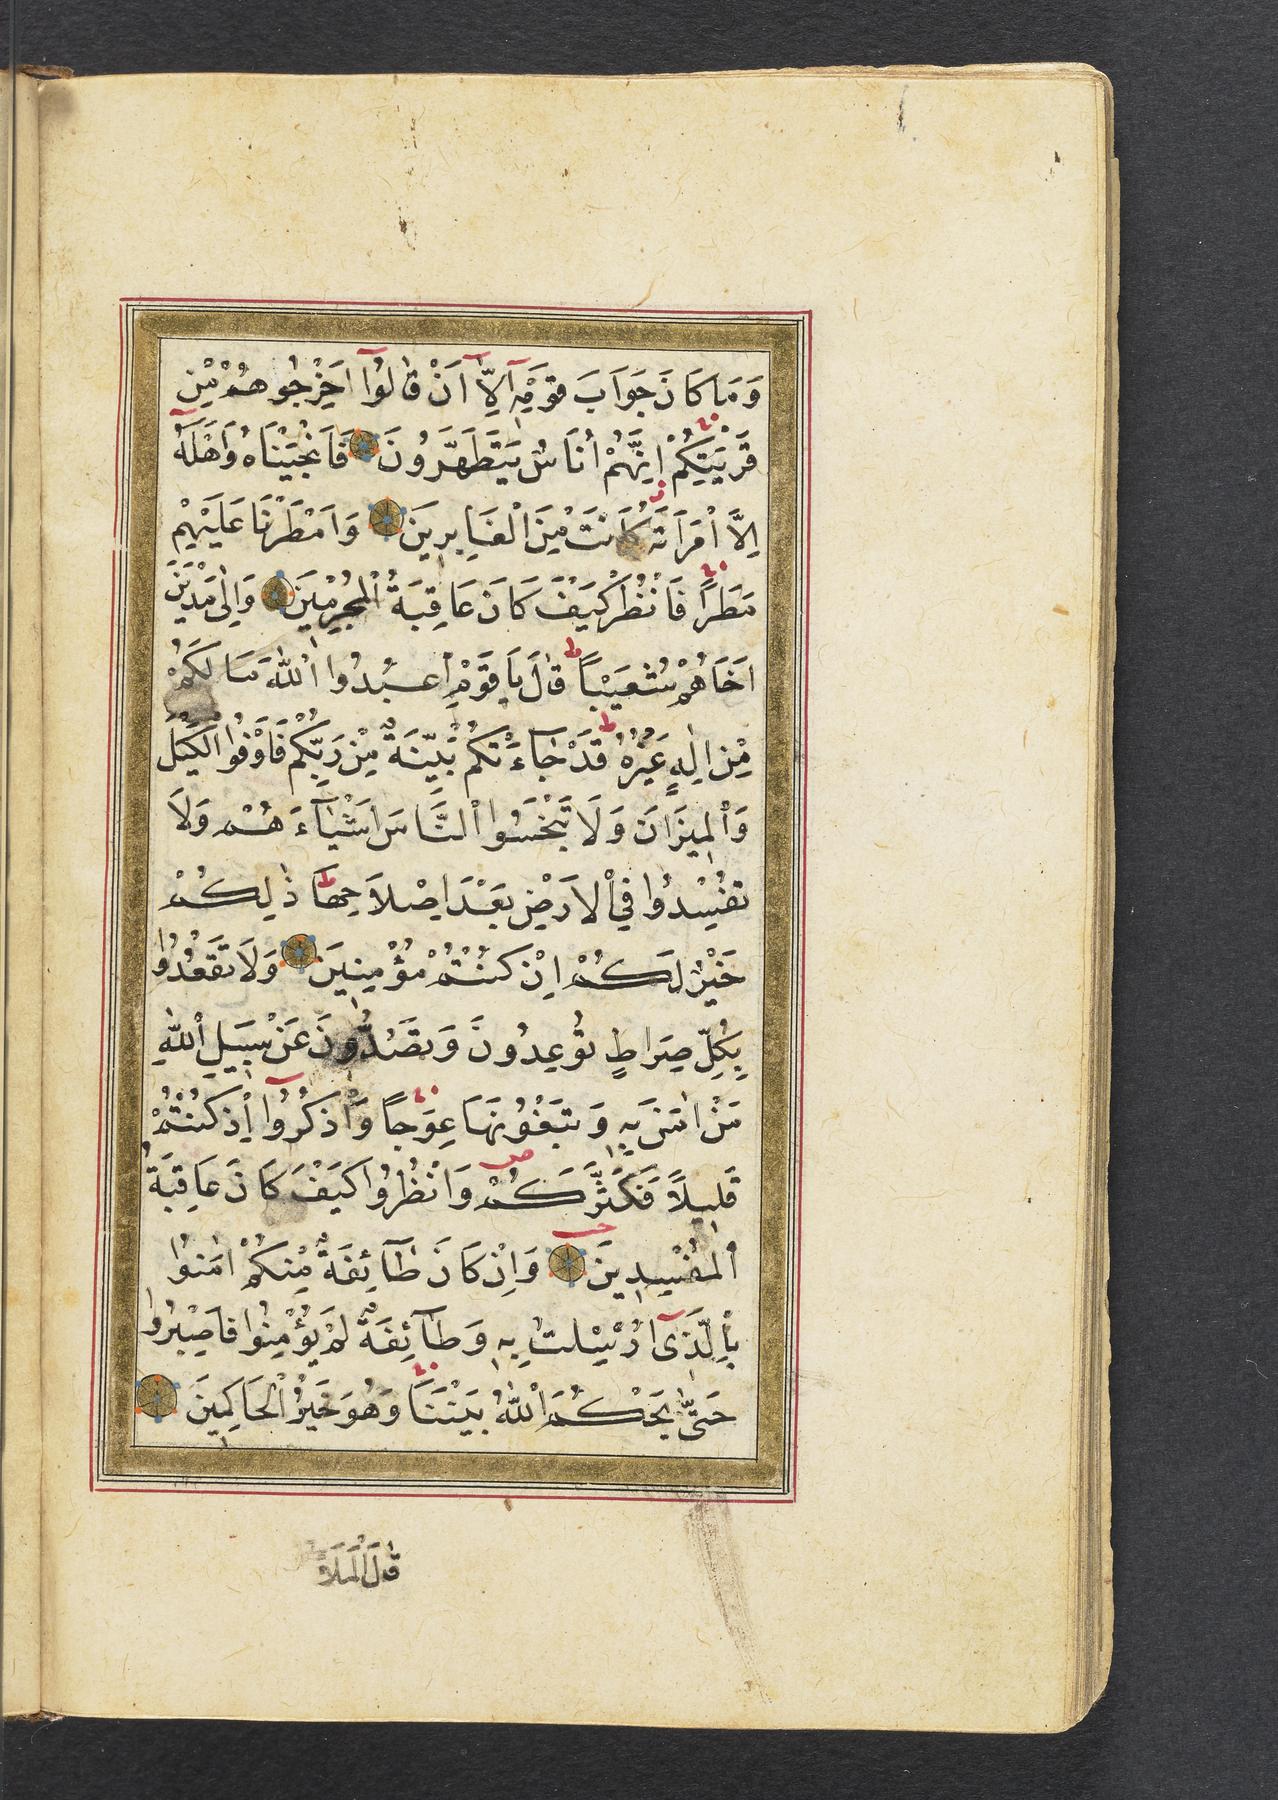 وَمَا كَانَ جَوَابَ قَوْمِهِ اِلَّا اَنْ قَالُوا اَخْرِجُوهُمْ مِنْ
قَرْيَتِكُمْ اِنَّهُمْ اُنَاسٌ يَتَطَهَّرُونَ فَاَنْجَيْنَاهُ وَاَهْلَهُ
اِلَّا امْرَاَتَهُ كَانَتْ مِنَ الْغَابِرِينَ وَاَمْطَرْنَا عَلَيْهِمْ
مَطَرًا فَانْظُرْ كَيْفَ كَانَ عَاقِبَةُ الْمُجْرِمِينَ وَاِلٰى مَدْيَنَ
اَخَاهُمْ شُعَيْبًا قَالَ يَا قَوْمِ اعْبُدُوا اللّٰهَ مَا لَكُمْ
مِنْ اِلٰهٍ غَيْرُهُ قَدْ جَآءَتْكُمْ بَيِّنَةٌ مِنْ رَبِّكُمْ فَاَوْفُوا الْكَيْلَ
وَالْمِيزَانَ وَلَا تَبْخَسُوا النَّاسَ اَشْيَآءَهُمْ وَلَا
تُفْسِدُوا فِي الْاَرْضِ بَعْدَ اِصْلَاحِهَا ذٰلِكُمْ
خَيْرٌ لَكُمْ اِنْ كُنْتُمْ مُؤْمِنِينَ وَلَا تَقْعُدُوا
بِكُلِّ صِرَاطٍ تُوعِدُونَ وَتَصُدُّونَ عَنْ سَبِيلِ اللّٰهِ
مَنْ اٰمَنَ بِهِ وَتَبْغُونَهَا عِوَجًا وَاذْكُرُوا اِذْ كُنْتُمْ
قَلِيلًا فَكَثَّرَكُمْ وَانْظُرُوا كَيْفَ كَانَ عَاقِبَةُ
الْمُفْسِدِينَ وَاِنْ كَانَ طَآئِفَةٌ مِنْكُمْ اٰمَنُوا
بِالَّذِى اُرْسِلْتُ بِهِ وَطَآئِفَةٌ لَمْ يُؤْمِنُوا فَاصْبِرُوا
حَتّٰى يَحْكُمَ اللّٰهُ بَيْنَنَا وَهُوَ خَيْرُ الْحَاكِمِينَ
قَالَ الْمَلَاُ